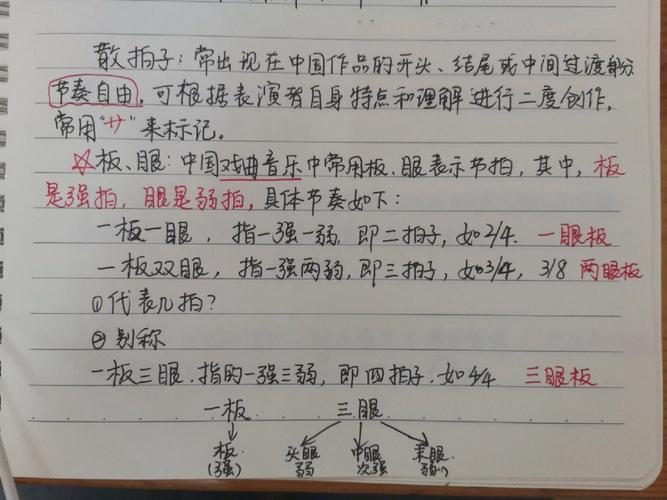 散拍子：常出现在中国作品的开头、结尾或中间过渡部分
节奏自由，可根据表演者自身特点和理解进行二度创作，
常用“サ”来标记。
☆板、眼：中国戏曲音乐中常用板、眼表示节拍，其中，板
是强拍，眼是弱拍，具体节奏如下：
一板一眼，指一强一弱，即二拍子，如2/4. 一眼板
一板双眼，指一强两弱，即三拍子，如3/4，3/8 两眼板
①代表几拍？
②别称
一板三眼，指的一强三弱，即四拍子．如4/4 三眼板
一板 三眼
板 头眼 中眼 末眼
(强) 弱 次强